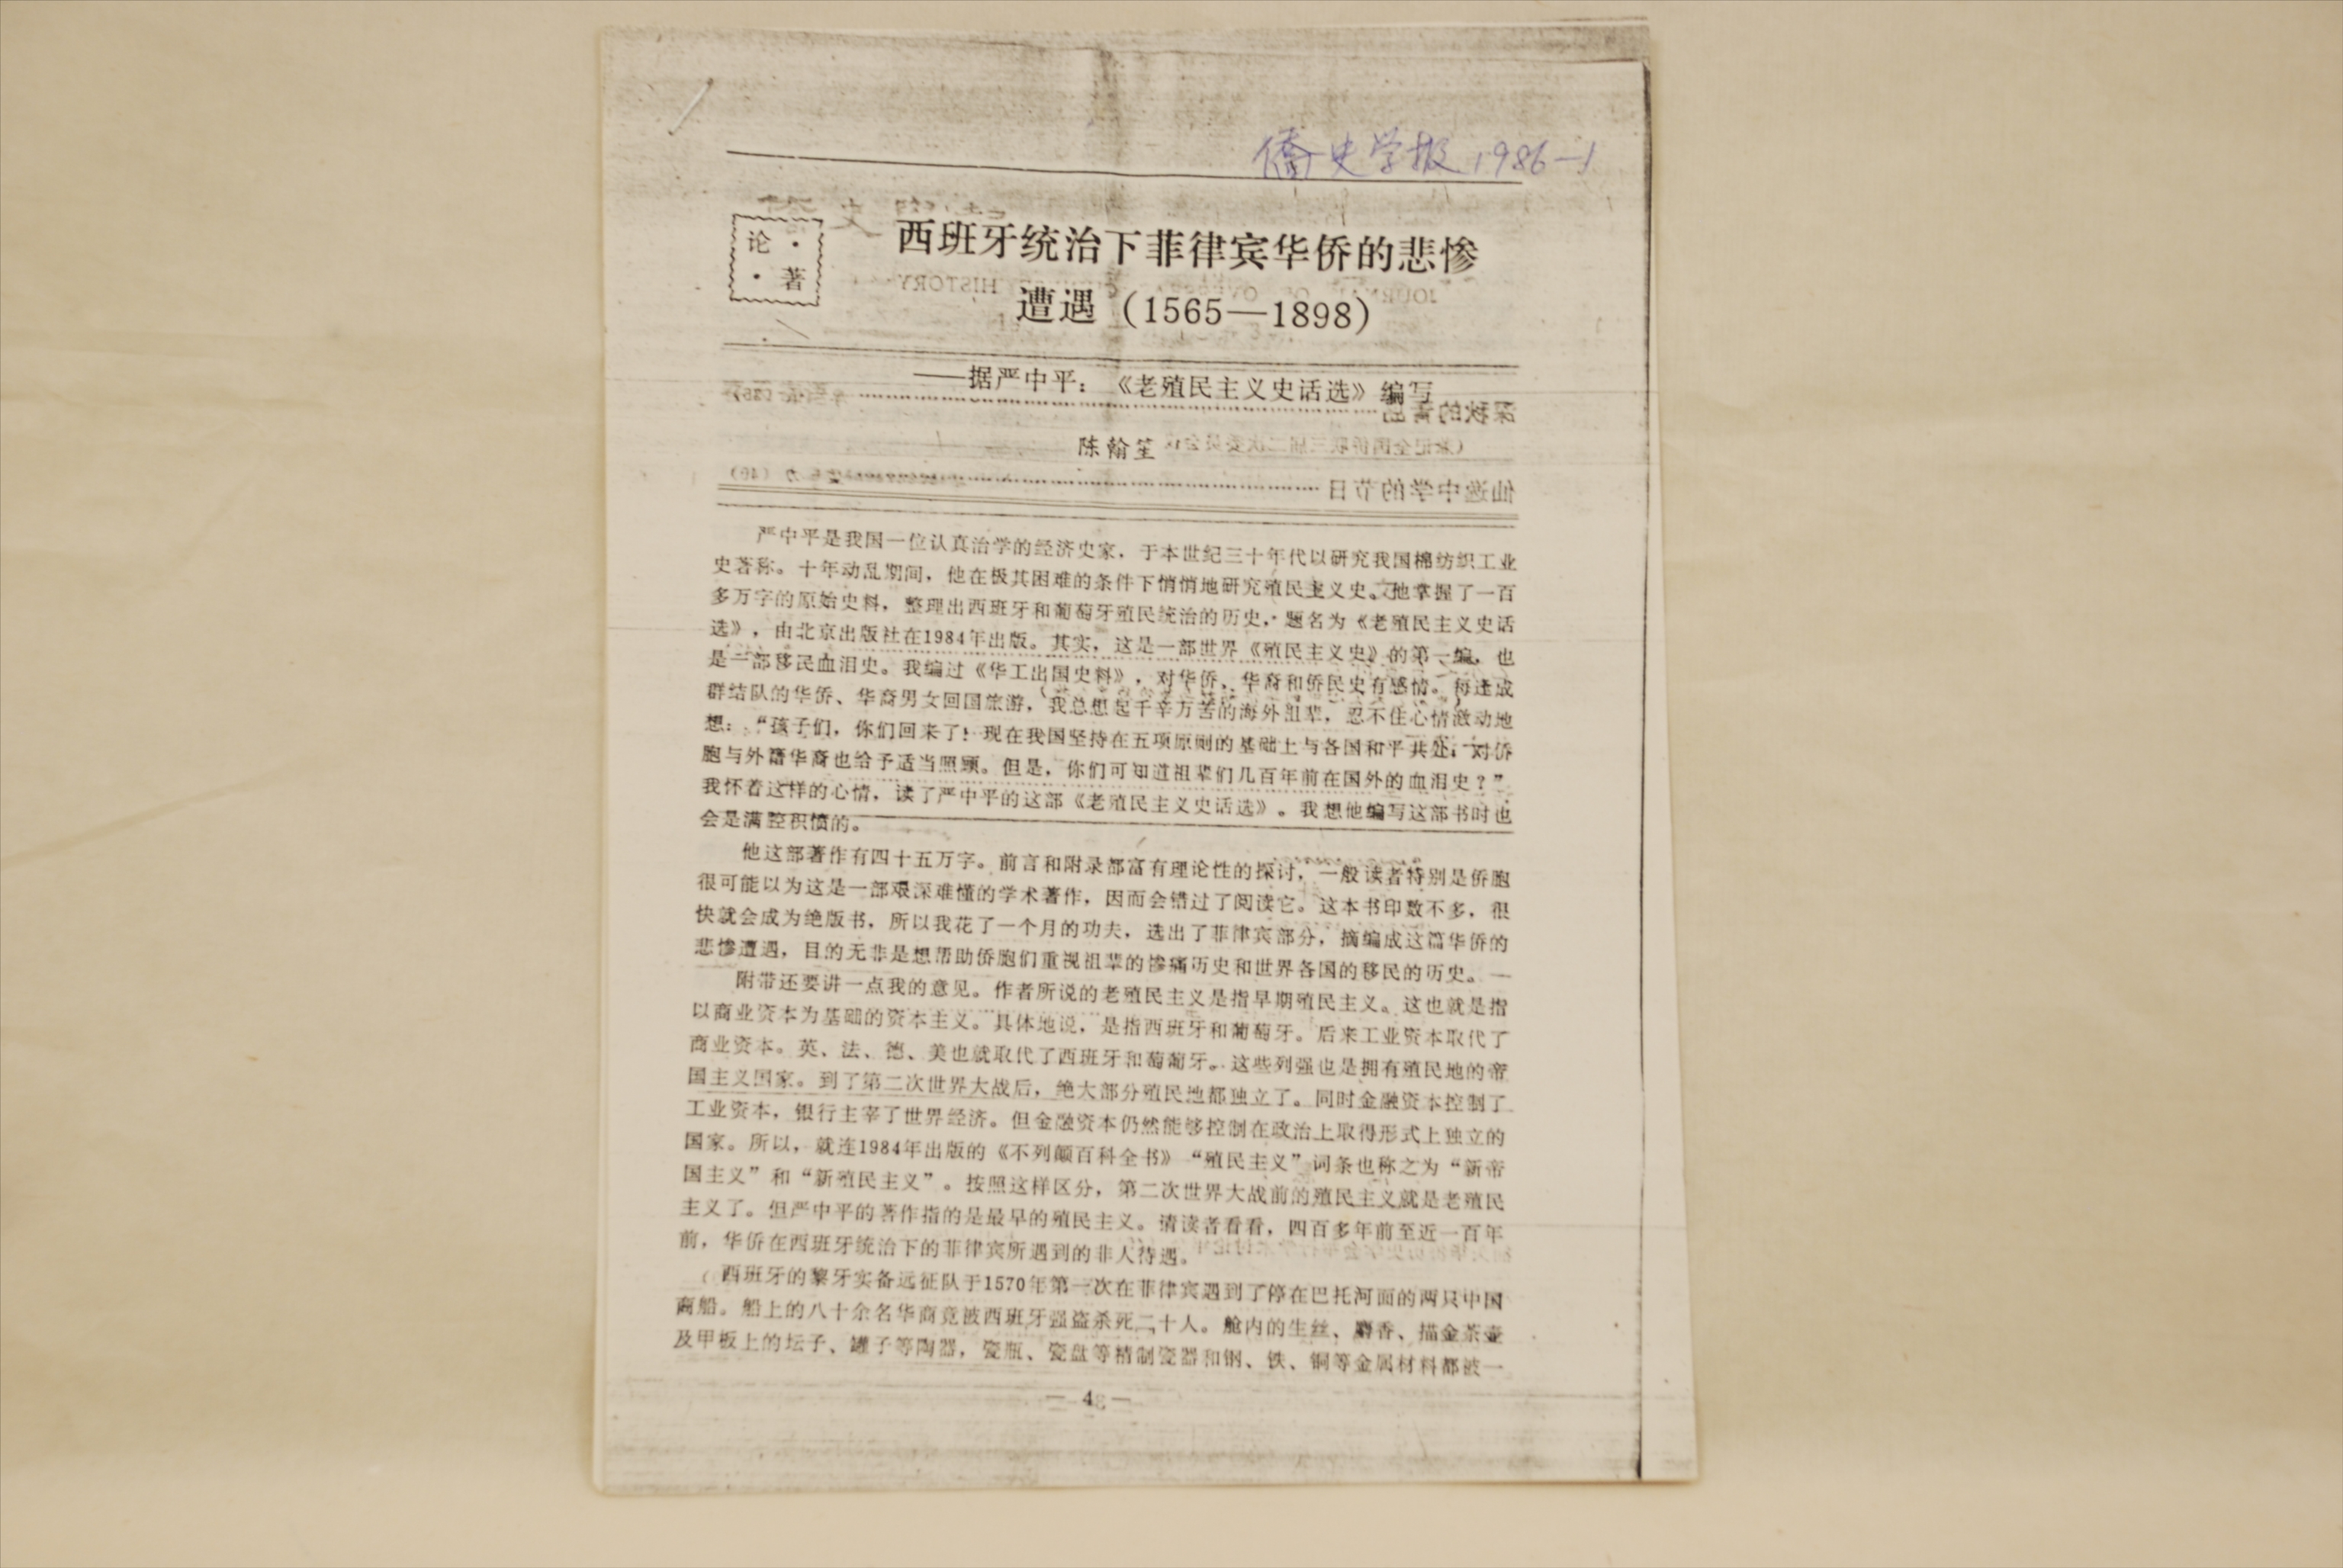 侨史学报 1986—1
论·
·著
西班牙统治下菲律宾华侨的悲惨
遭遇(1565—1898)
——据严中平:《老殖民主义史话选》编写
陈翰笙
严中平是我国一位认真治学的经济史家,于本世纪三十年代以研究我国棉纺织工业
史著称。十年动乱期间,他在极其困难的条件下悄悄地研究殖民主义史。他掌握了一百
多万字的原始史料,整理出西班牙和葡萄牙殖民统治的历史,题名为《老殖民主义史话
选》,由北京出版社在1984年出版。其实,这是一部世界《殖民主义史》的第一编,也
是一部移民血泪史。我编过《华工出国史料》,对华侨、华裔和侨民史有感情。每逢成
群结队的华侨、华裔男女回国旅游,我总想起千辛万苦的海外祖辈,忍不住心情激动地
想:“孩子们,你们回来了!现在我国坚持在五项原则的基础上与各国和平共处;对侨
胞与外籍华裔也给予适当照顾。但是,你们可知道祖辈们几百年前在国外的血泪史?”
我怀着这样的心情,读了严中平的这部《老殖民主义史话选》。我想他编写这部书时也
会是满腔积愤的。
他这部著作有四十五万字。前言和附录都富有理论性的探讨,一般读者特别是侨胞
很可能以为这是一部艰深难懂的学术著作,因而会错过了阅读它。这本书印数不多,很
快就会成为绝版书,所以我花了一个月的功夫,选出了菲律宾部分,摘编成这篇华侨的
悲惨遭遇,目的无非是想帮助侨胞们重视祖辈的惨痛历史和世界各国的移民的历史。
附带还要讲一点我的意见。作者所说的老殖民主义是指早期殖民主义。这也就是指
以商业资本为基础的资本主义。具体地说,是指西班牙和葡萄牙。后来工业资本取代了
商业资本。英、法、德、美也就取代了西班牙和萄葡牙。这些列强也是拥有殖民地的帝
国主义国家。到了第二次世界大战后,绝大部分殖民地都独立了。同时金融资本控制了
工业资本,银行主宰了世界经济。但金融资本仍然能够控制在政治上取得形式上独立的
国家。所以,就连1984年出版的《不列颠百科全书》“殖民主义”词条也称之为“新帝
国主义”和“新殖民主义”。按照这样区分,第二次世界大战前的殖民主义就是老殖民
主义了。但严中平的著作指的是最早的殖民主义。请读者看看,四百多年前至近一百年
前,华侨在西班牙统治下的菲律宾所遇到的非人待遇。
西班牙的黎牙实备远征队于1570年第一次在菲律宾遇到了停在巴托河面的两只中国
商船。船上的八十余名华商竟被西班牙强盗杀死二十人。舱内的生丝、麝香、描金茶壶
及甲板上的坛子、罐子等陶器,瓷瓶、瓷盘等精制瓷器和钢、铁、铜等金属材料都被一